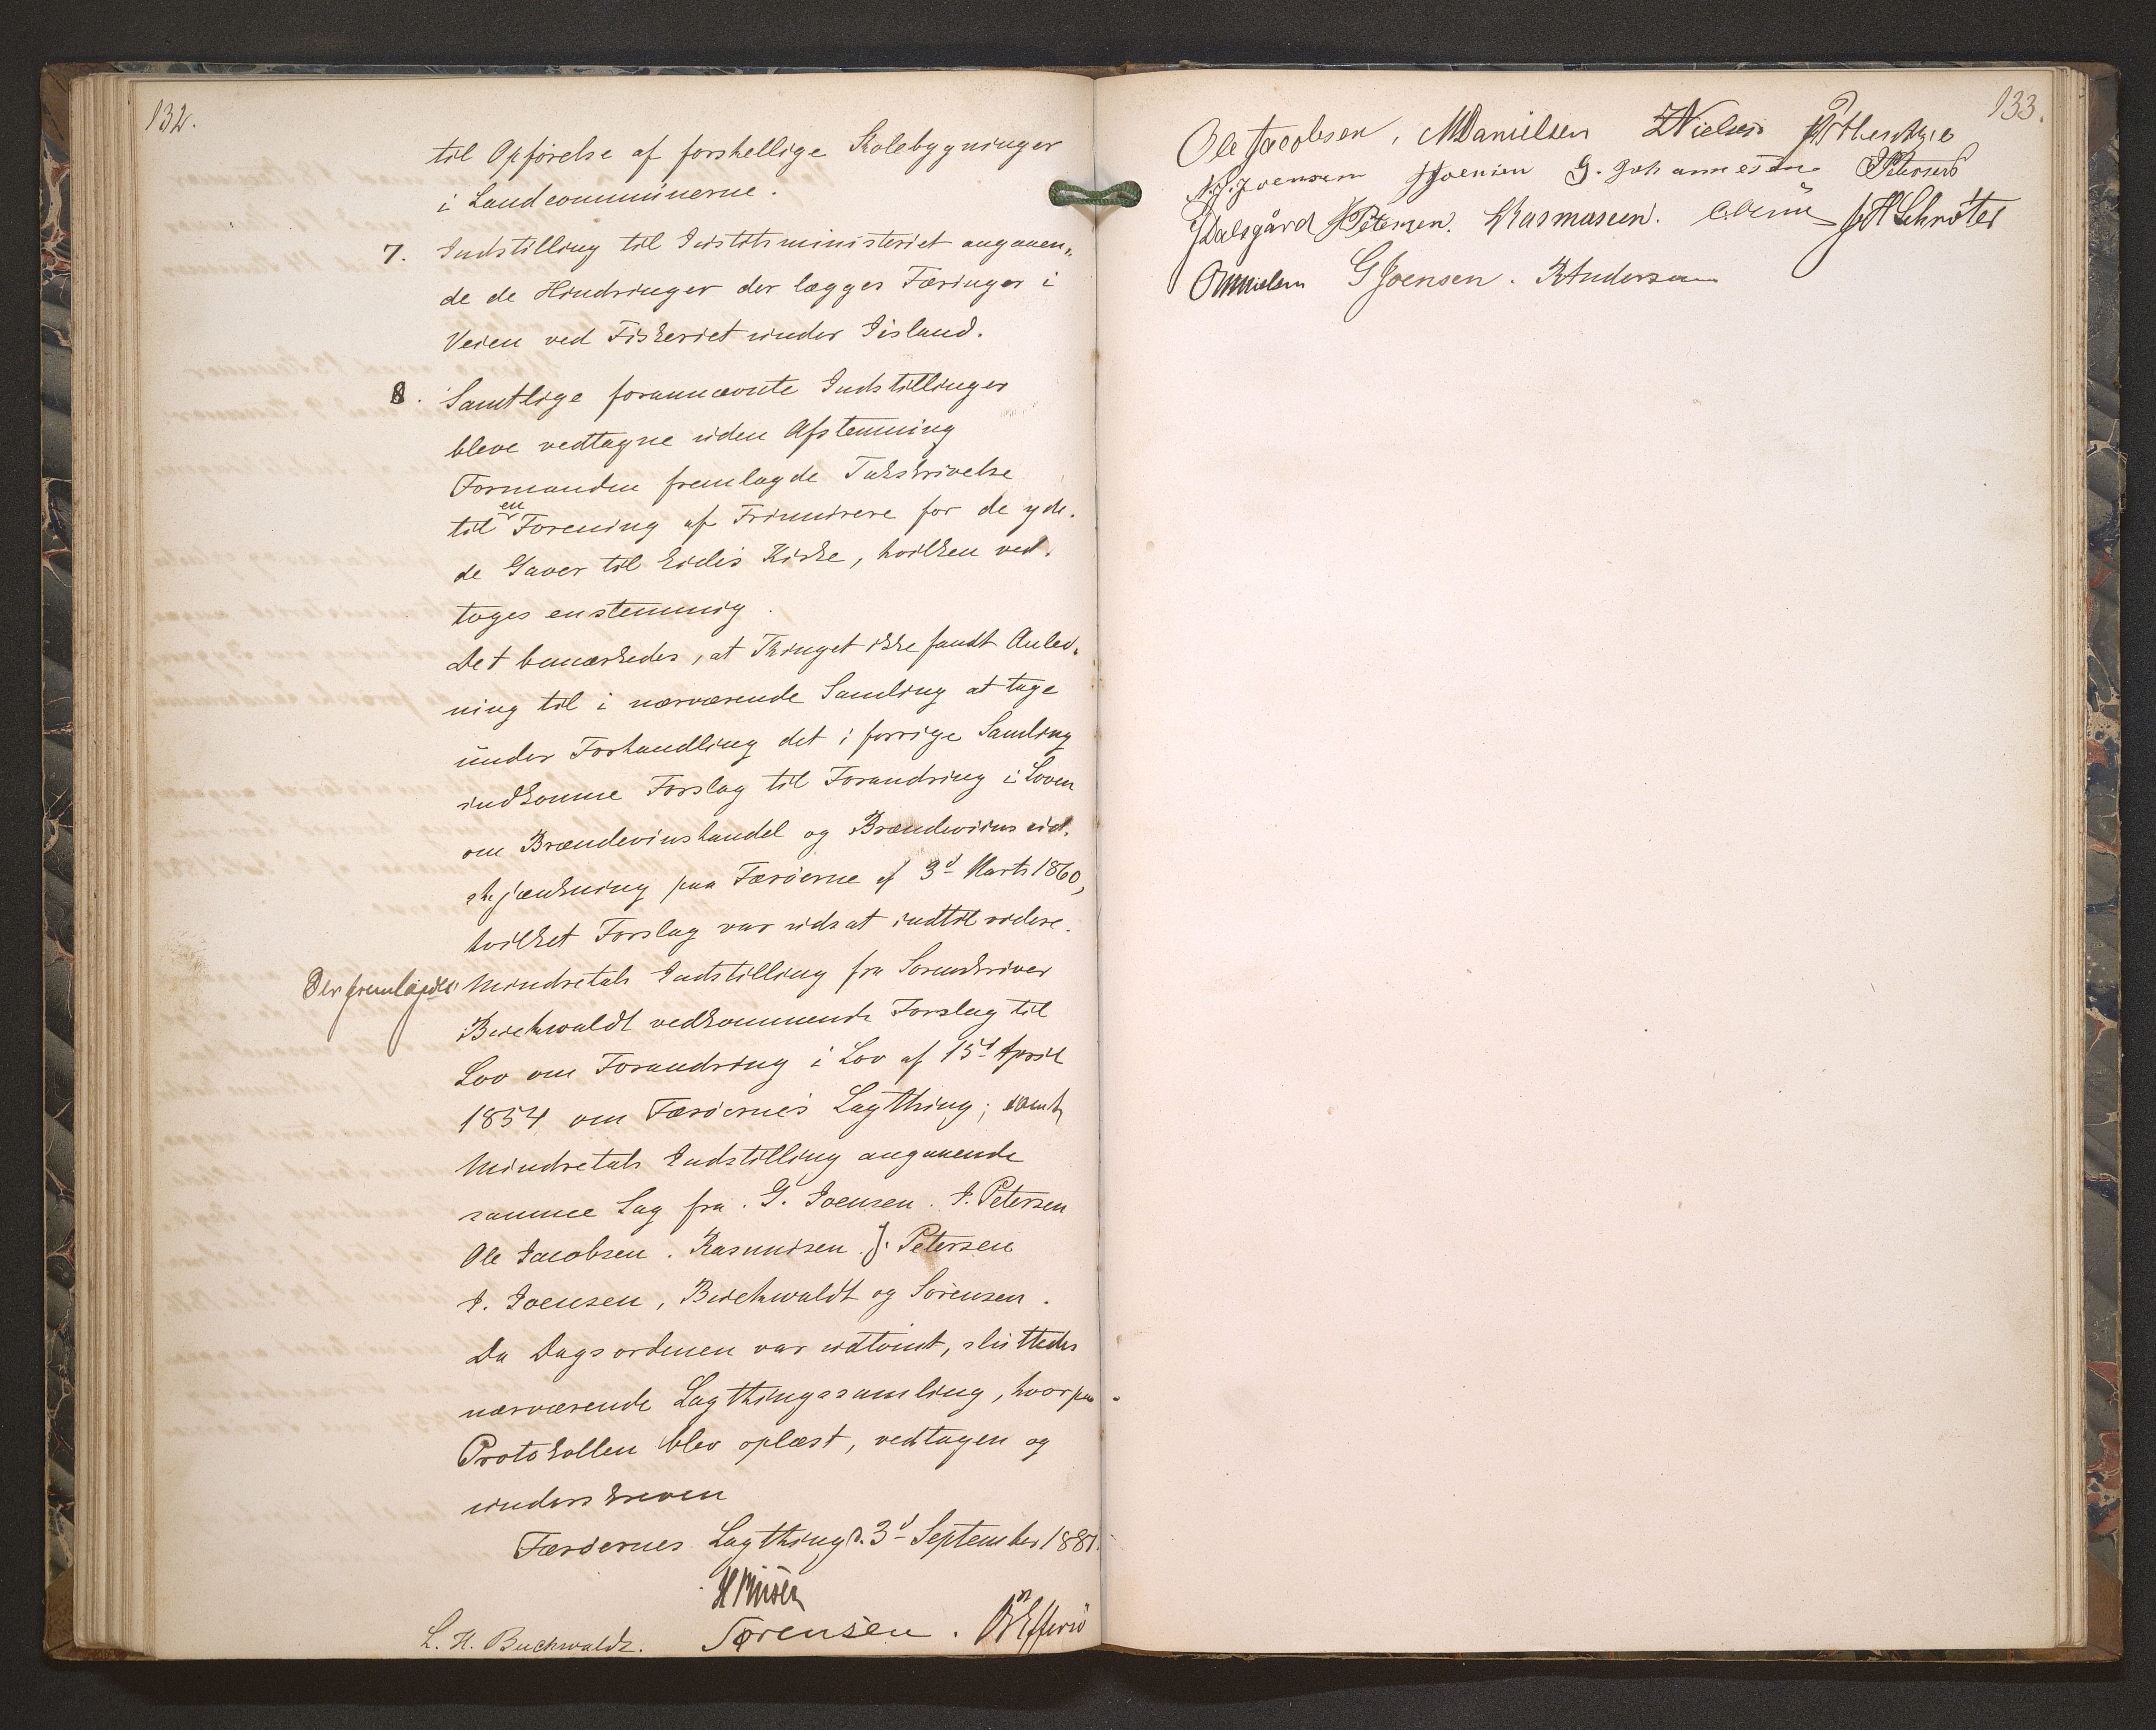 132.
til Opførelse af forskellige Skolebygninger
i Landcommunerne.
7. Indstilling til Justitsministeriet angaaen„
de de Hindringer der lægges Færinger i
Veien ved Fiskeriet under Island.
8. Samtlige forannævnte Indstillinger
bleve vedtagne uden Afstemning
Formanden fremlagde Takskrivelse
til en Forening af Frimurere for de yde-
de Gaver til Eidis Kirke, hvilken ved-
toges enstemmig.
Det bemærkedes, at Thinget ikke fandt Anled-
ning til i nærværende Samling at tage
under Forhandling det i forrige Samling
indkomne Forslag til Forandring i Loven
om Brændevinshandel og Brændeviins ud-
skjænkning paa Færøerne af 3d Marts 1860,
hvilket Forslag var udsat indtil videre.
Der fremlagdes Mindretals Indstilling fra Sorenskriver
Buchwaldt vedkommende Forslag til
Lov om Forandring i Lov af 15d April
1854 om Færøernes Lagthing; samt
Mindretals Indstilling angaaende
samme Sag fra. G. Joensen. J. Petersen
Ole Jacobsen. Rasmusen. J. Petersen
J. Joensen, Buchwaldt og Sørensen.
Da Dagsordenen var udtømt, sluttedes
nærværende Lagthingssamling, hvorpaa
Protokollen blev oplæst, vedtagen og
underskreven
Færøernes Lagthing d. 3d September 1881.
L. H. Buchwaldt. Sørensen. Effersø
133.
Ole Jacobsen, MDanielsen ZNielsen
Joensen JJoensen G. Johannesen JPetersen
JDalsgård JPetersen. Rasmussen. HSchrøter
GJoensen. RAndersen